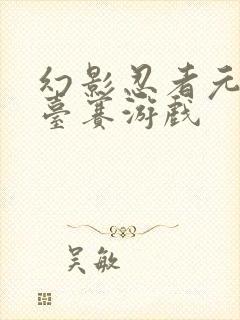 幻影忍者元
臺赛游戏
吴敏